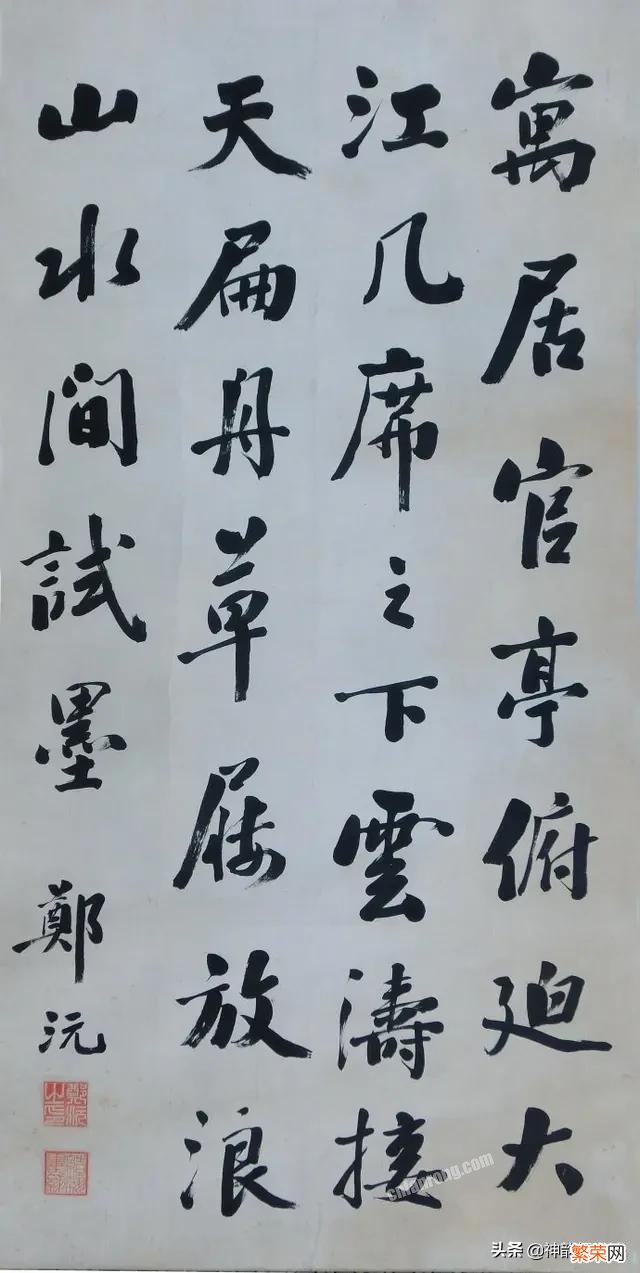 寓居官亭俯廹大
江几席之下雲濤接
天扁舟草屨放浪
山水間試墨 鄭沅
鄭沅之印
头条 @神韵
繁荣网